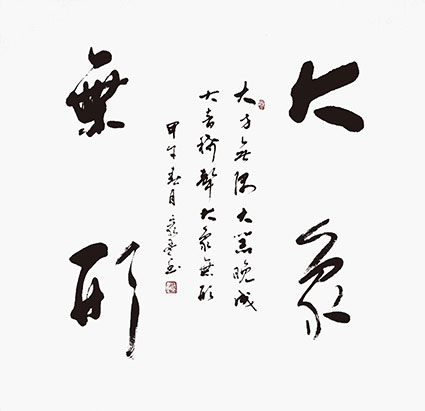 大象
無形
大方無隅大器晚成
大音稀聲大象無形
甲午春月